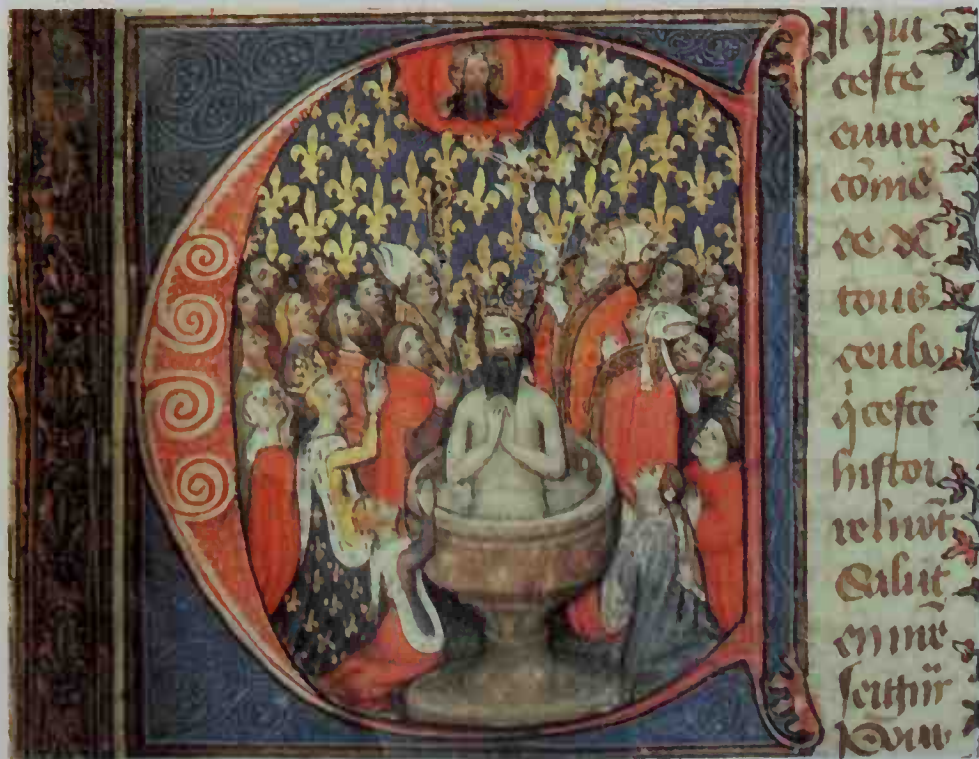 Cil qui
ceste
euure
cōmē
ce de
tous
ceulx
q̄ ceste
histoi
re liront
Salut
en nr̄e
seign̄r
Pour